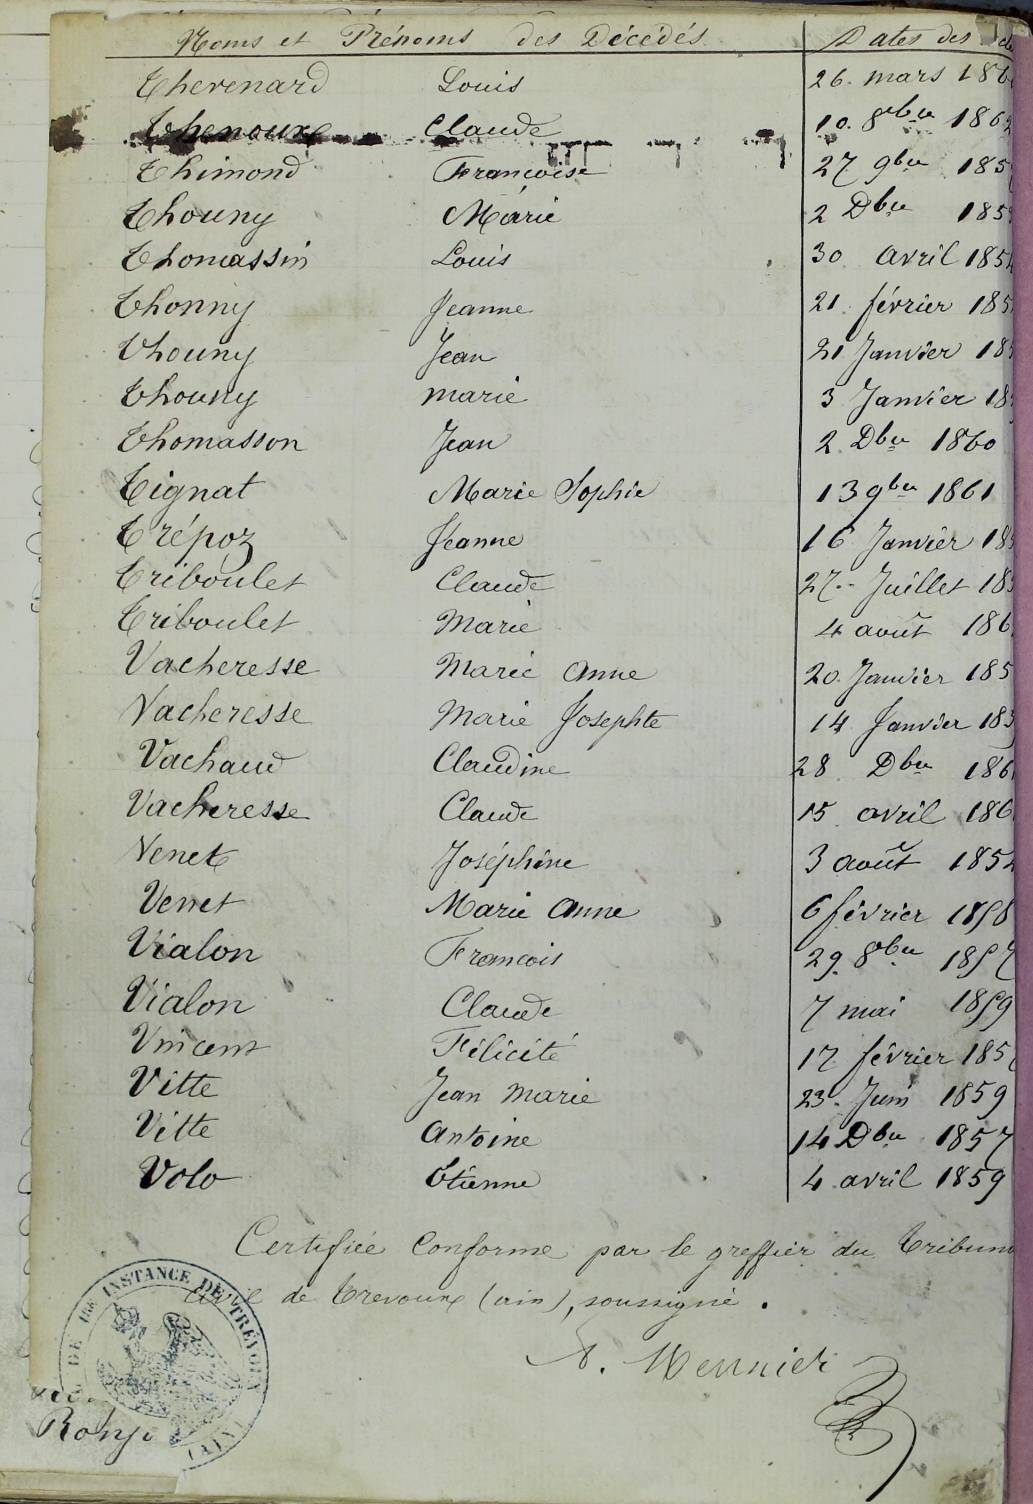 Noms et Prénoms des Décédés Dates des
Thevenard Louis 26. mars 186
Thenoux Claude 10. 8bre 186
Thimond Francoise 27 9bre 185
Thouny Marie 2 Dbre 185
Thomassin Louis 30 avril 185
Thonny Jeanne 21. février 185
Thouny Jean 21 Janvier 18
Thouny marie 3 Janvier 18
Thomasson Jean 2. Dbre 1860
Tignat Marie Sophie 13 9bre 1861
Trépoz Jeanne 16 Janvier 18
Triboulet Claude 27 Juillet 18
Triboulet Marie 4 août 186
Vacheresse Marie Anne 20. Janvier 185
Vacheresse Marie Josephte 14 Janvier 185
Vachaud Claudine 28 Dbre 186
Vacheresse Claude 15 avril 186
Venet Joséphine 3 août 185
Venet Marie Anne 6 février 1858
Vialon Francois 29. 8bre 1857
Vialon Claude 7 mai 1859
Vincent Félicité 17 février 185
Vitte Jean Marie 23. Juin 1859
Vitte Antoine 14 Dbre 1857
Volo Étienne 4 avril 1859
Certifiée Conforme par le greffier du Tribun
civil de Trevoux (ain), soussigné.
A. Meunier
DE 1ERE INSTANCE DE TRÉVOUX
(AIN)